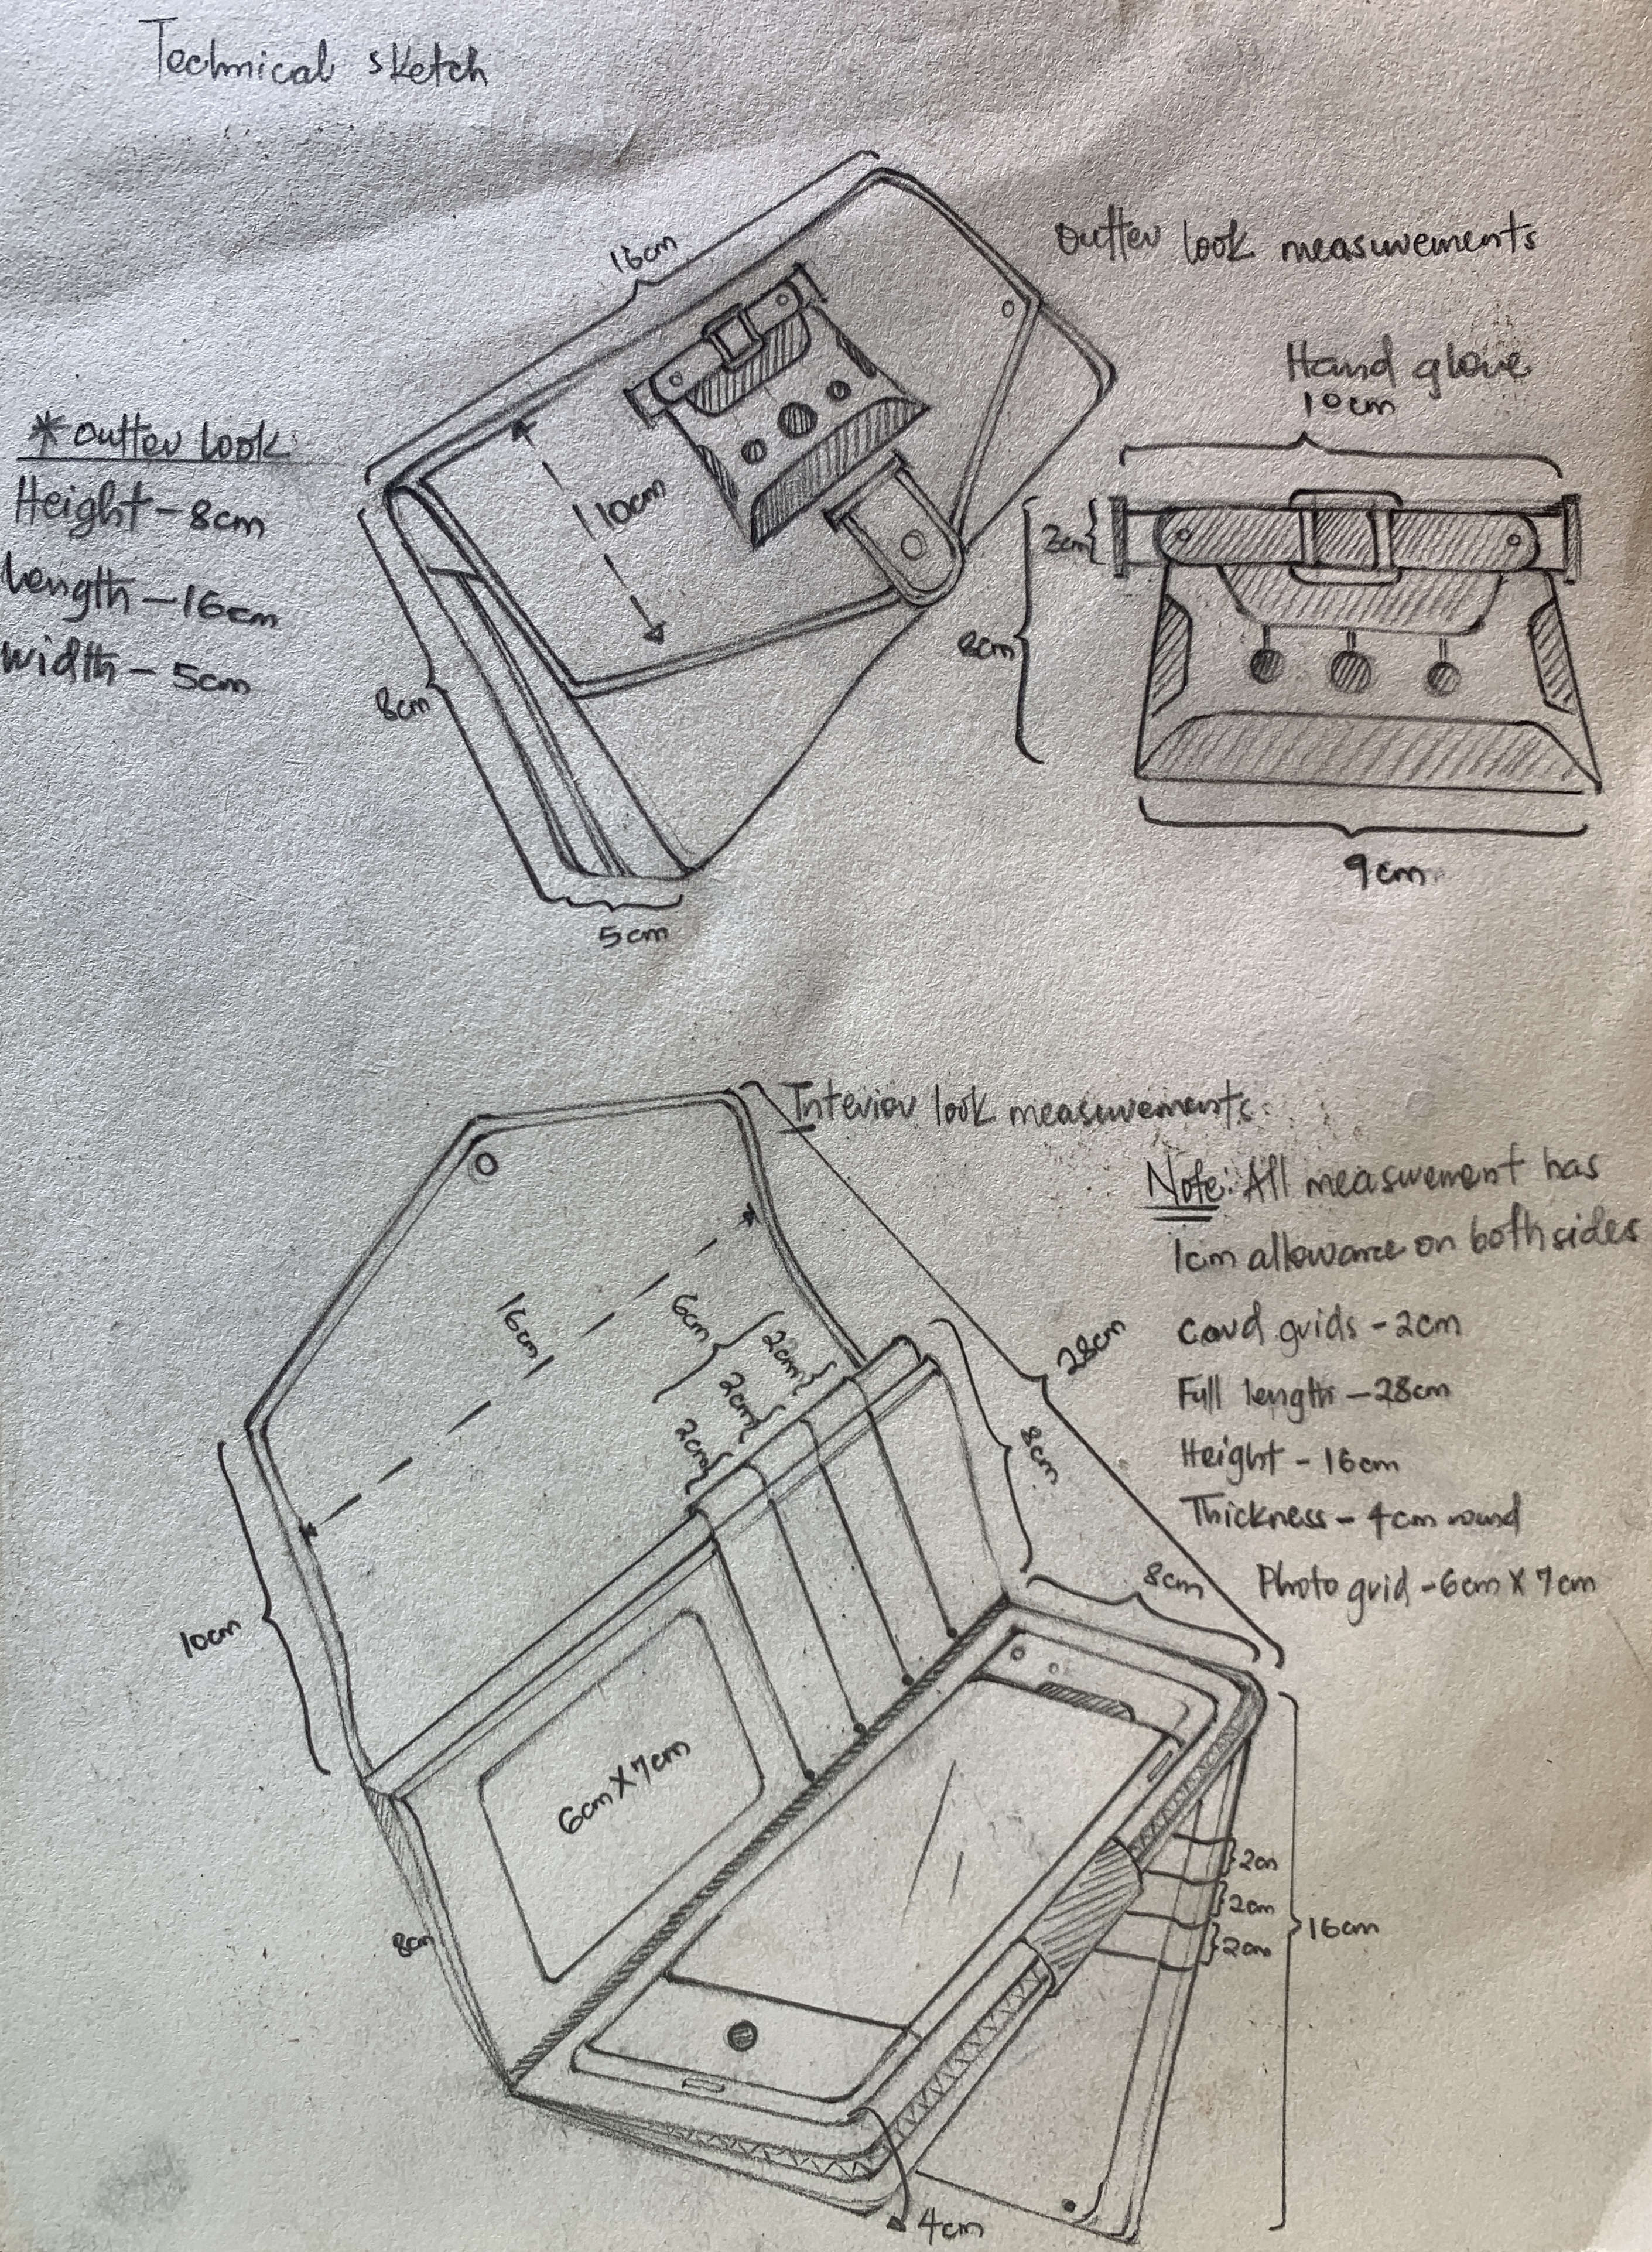 Technical sketch
outter look measurements
16cm
Hand glove
10cm
* outter look
Height - 8cm
Length - 16cm
Width - 5cm
10cm
2cm
8cm
8cm
9cm
5cm
Interior look measurements
Note: All measurement has
1cm allowance on both sides
Card grids - 2cm
Full length - 28cm
Height - 16cm
Thickness - 4cm round
Photo grid - 6cm X 7cm
16cm
6cm
2cm
2cm
2cm
28cm
8cm
8cm
10cm
6cm X 7cm
8cm
2cm
2cm
2cm
16cm
4cm